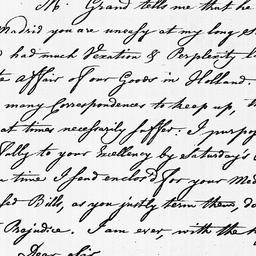 M. Grand tells me that he
Madrid you are uneasy at my long s
had much Vexation & Perplexity l
te affair of our Goods in Holland.
many Correspondences to keep up, t
at times necessarily suffer. I purpo
fully to your Excellency by Saturday's
time I send enclos'd for your Med
sed Bills, as you justly term them, do
t Prejudice. I am ever, with the h
Dear sir